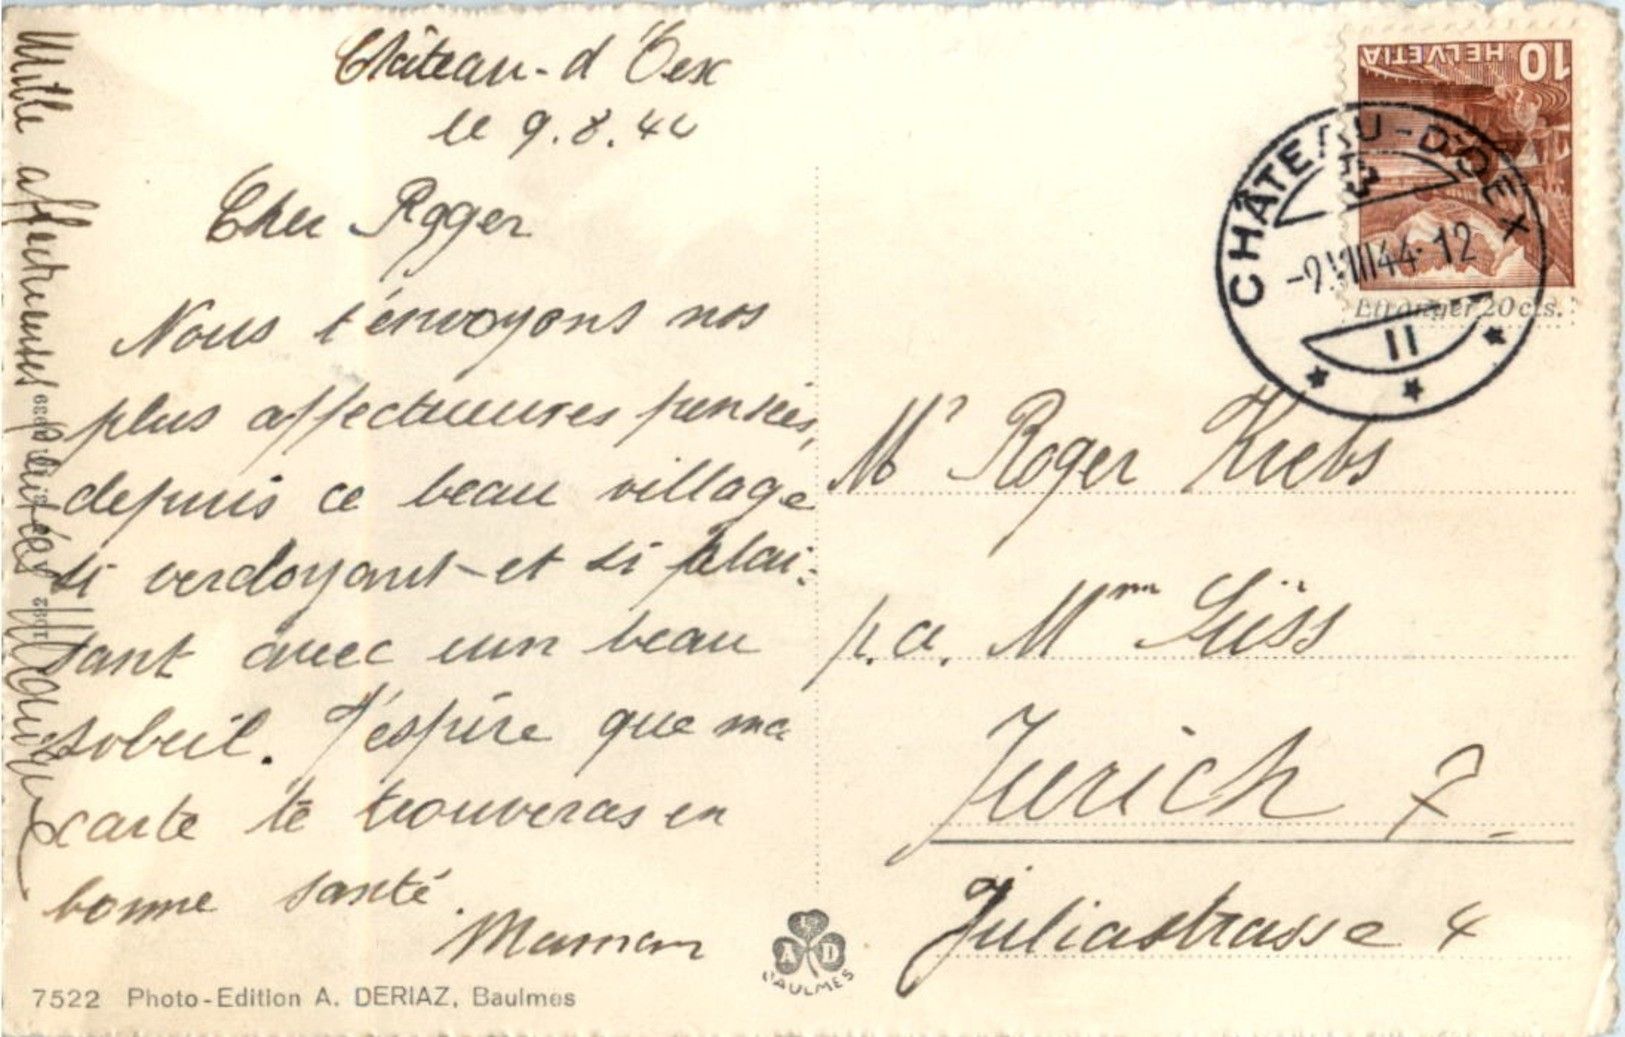 Château-d'Oex
le 9.8.44
Cher Roger
Nous t'envoyons nos
plus affectueuses pensées,
depuis ce beau village
si verdoyant et si plai-
sant avec un beau
soleil. J'espère que ma
carte te trouveras en
bonne santé.
Maman
Mille affectueuses
7522 Photo-Edition A. DERIAZ, Baulmes
A D
BAULMES
HELVETIA 10
Etranger 20 cts.
CHÂTEAU-D'OEX
-9.VIII.44-12
II
Mr Roger Krebs
p.a. Mme Süss
Zurich 7
Juliastrasse 4